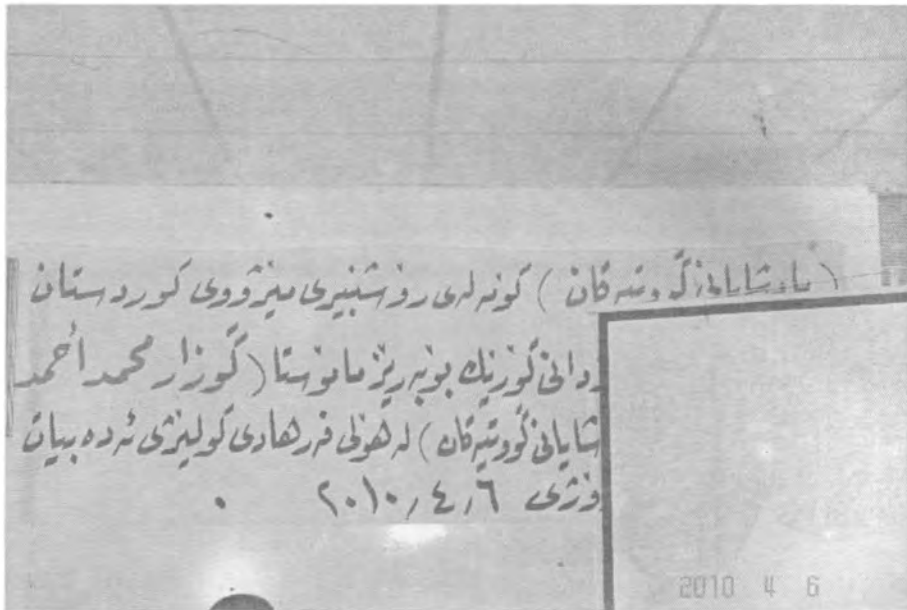 (پادشایانی گوتیەکان) کۆمەلەی رۆشنبیری میژووی کوردستان
کۆریك بۆ بەریز مامۆستا (گوزار محمد أحمد
شایانی گووتیەکان) لە هۆلی فەرهادی کۆلیژی ئەدەبیات
٢٠١٠/٤/٦
2010 4 6